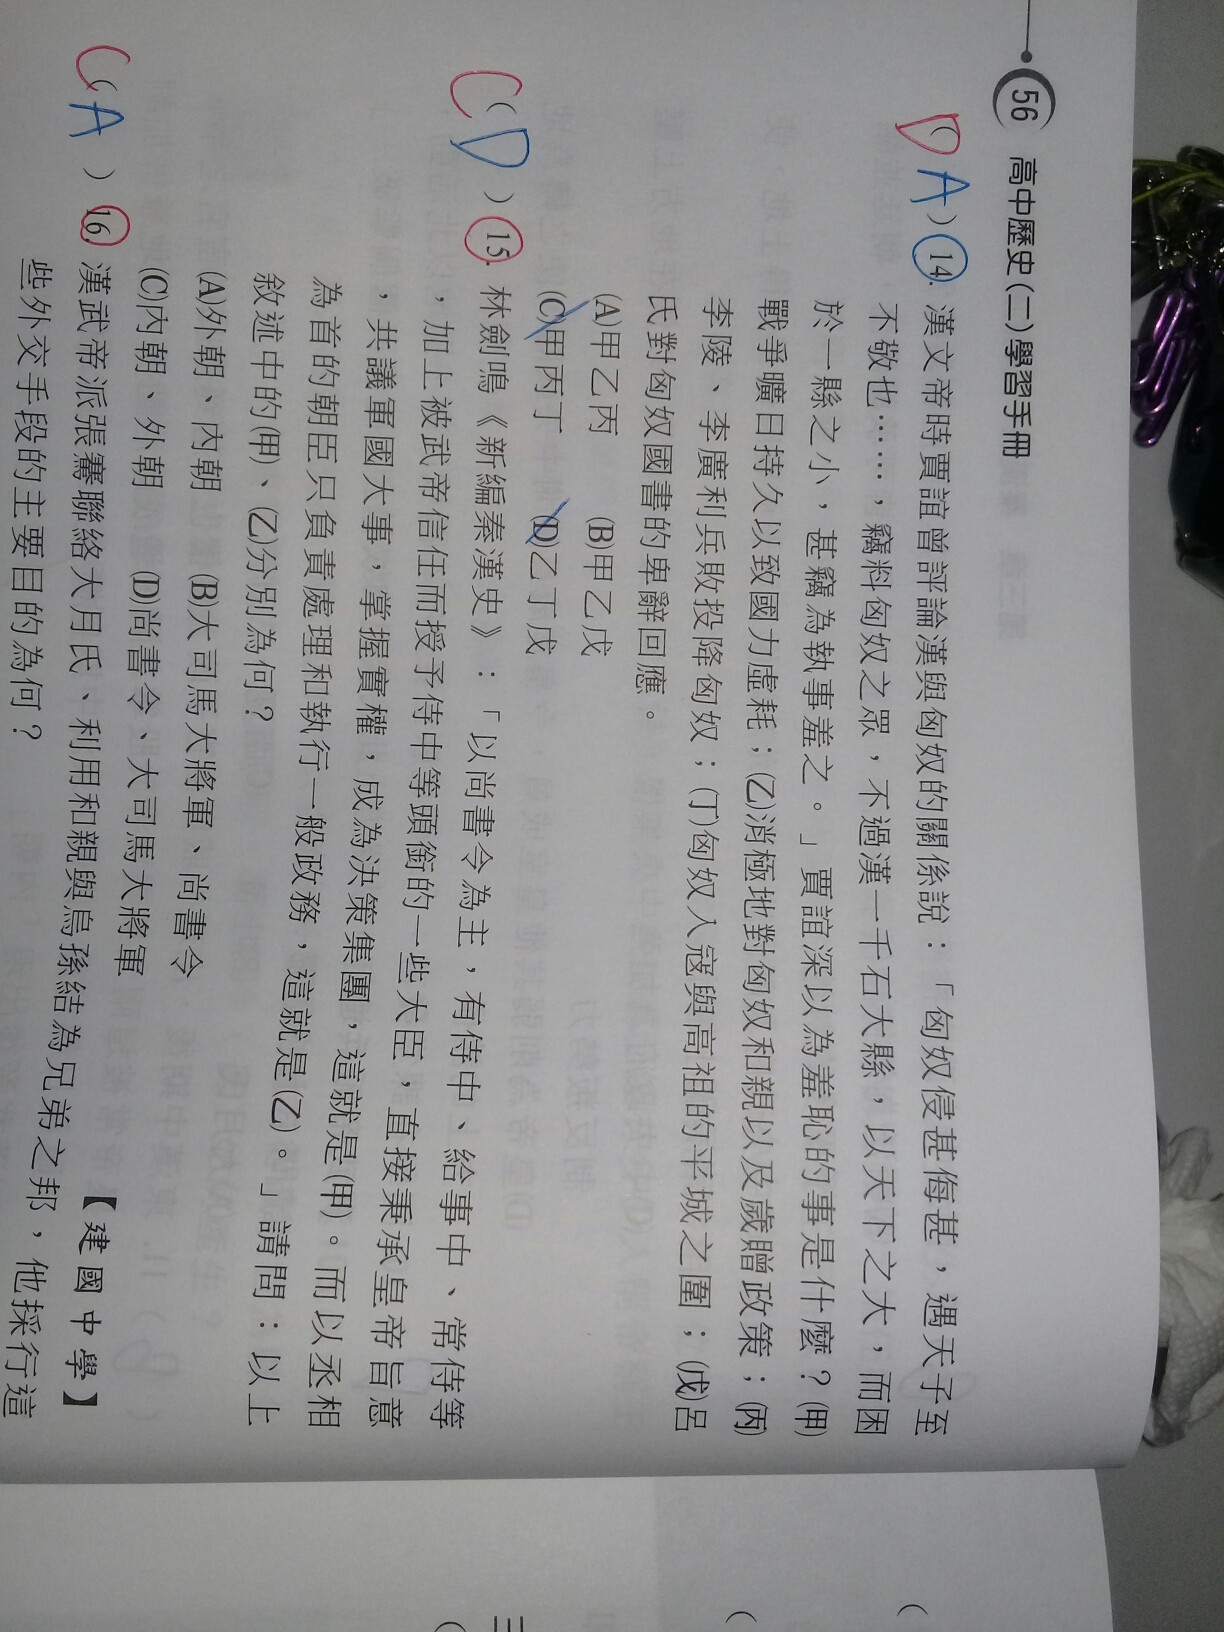 56 高中歷史(二)學習手冊
D(A)14. 漢文帝時賈誼曾評論漢與匈奴的關係說：「匈奴侵甚侮甚，遇天子至
不敬也……，竊料匈奴之眾，不過漢一千石大縣，以天下之大，而困
於一縣之小，甚竊為執事羞之。」賈誼深以為羞恥的事是什麼？(甲)
戰爭曠日持久以致國力虛耗；(乙)消極地對匈奴和親以及歲贈政策；(丙)
李陵、李廣利兵敗投降匈奴；(丁)匈奴入寇與高祖的平城之圍；(戊)呂
氏對匈奴國書的卑辭回應。
(A)甲乙丙 (B)甲乙戊
(C)甲丙丁 (D)乙丁戊
C(D)15. 林劍鳴《新編秦漢史》：「以尚書令為主，有侍中、給事中、常侍等
，加上被武帝信任而授予侍中等頭銜的一些大臣，直接秉承皇帝旨意
，共議軍國大事，掌握實權，成為決策集團，這就是(甲)。而以丞相
為首的朝臣只負責處理和執行一般政務，這就是(乙)。」請問：以上
敘述中的(甲)、(乙)分別為何？
(A)外朝、內朝 (B)大司馬大將軍、尚書令
(C)內朝、外朝 (D)尚書令、大司馬大將軍
【建國中學】
C(A)16. 漢武帝派張騫聯絡大月氏、利用和親與烏孫結為兄弟之邦，他採行這
些外交手段的主要目的為何？
三